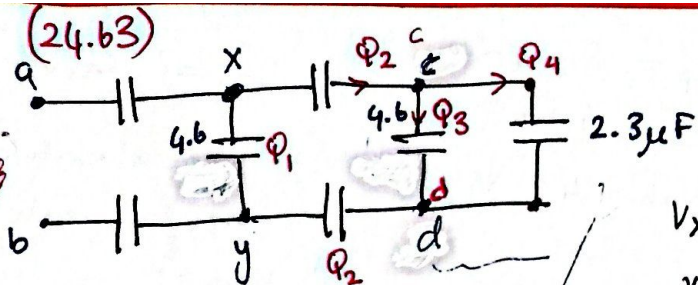 (24.63)
a
x
Q₂
c
c
Q₄
4.6
Q₁
4.6
Q₃
2.3μF
b
y
Q₂
d
d
V